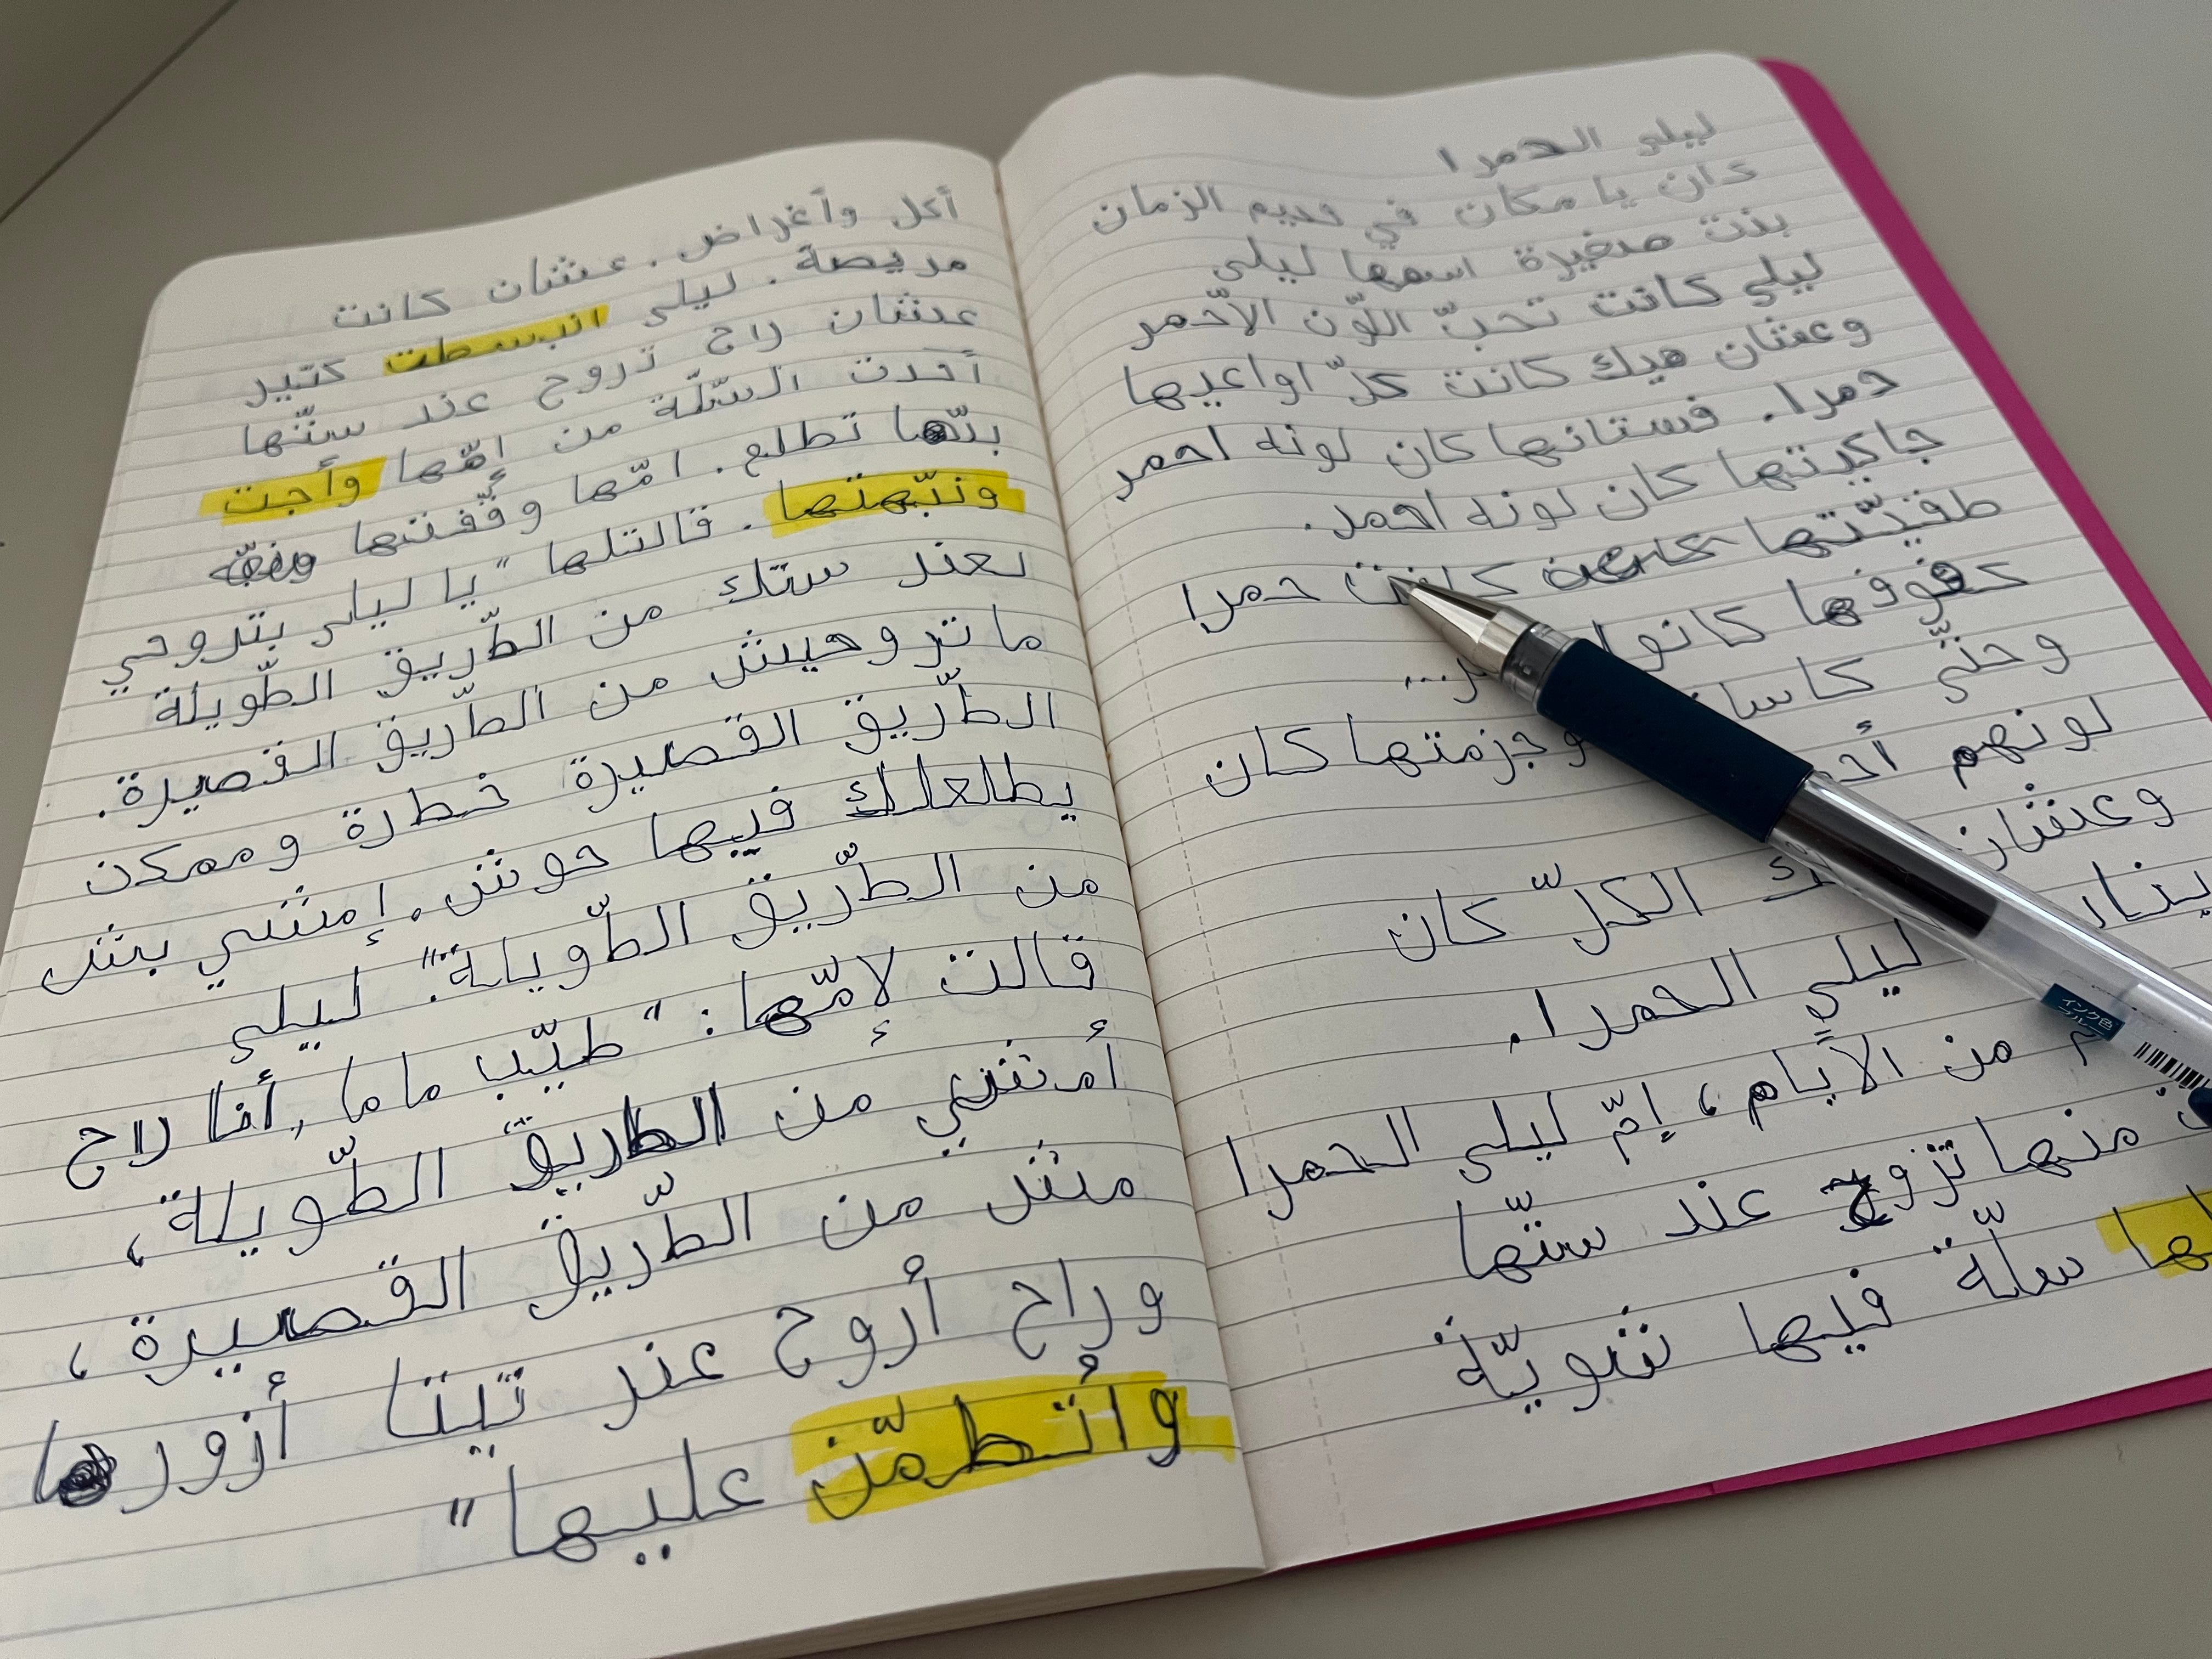 ليلى الحمرا
كان يا مكان في قديم الزمان
بنت صغيرة اسمها ليلى
ليلى كانت تحبّ اللّون الأحمر
وعشان هيك كانت كلّ اواعيها
حمرا. فستانها كان لونه احمر
جاكيتها كان لونه احمر.
طقيّتها كانت حمرا
كفوفها كانوا
وحتّى كاسا وجزمتها كان
لونهم
وعشان الكلّ كان
ليلى الحمرا.
من الأيّام، إمّ ليلى الحمرا
منها تروح عند ستّها
سلّة فيها شويّة
أكل وأغراض. عشان كانت
مريضة. ليلى انبسطت كتير
عشان راح تروح عند ستّها
أخدت السّلّة من إمّها وأجت
بدّها تطلع. امّها وقّفتها
ونبّهتها. قالتلها "يا ليلى بتروحي
لعند ستك من الطّريق الطّويلة
ما تروحيش من الطّريق القصيرة.
الطّريق القصيرة خطرة وممكن
يطلعلك فيها حوش. إمشي بش
من الطّريق الطّويلة". ليلى
قالت لإمّها: "طيّب ماما, أنا راح
أمشي من الطريق الطّويلة،
مش من الطّريق القصيرة،
وراح أروح عند تيتا أزورها
وأتطمّن عليها"
インク色